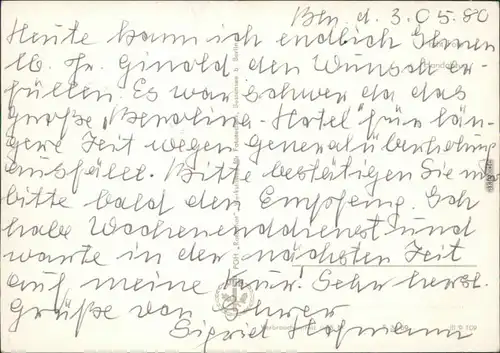 Bln. d. 3.05.80
Heute kann ich endlich Ihnen
lb. Fr. Ginold den Wunsch er-
füllen. Es war schwer da das
große "Berolina-Hotel" für län-
gere Zeit wegen Generalüberholung
ausfällt. Bitte bestätigen Sie mir
bitte bald den Empfang. Ich
habe Wochenenddienst und
warte in der nächsten Zeit
auf meine Kur! Sehr herzl.
Grüße von Ihrer
Sigrid Hofmann